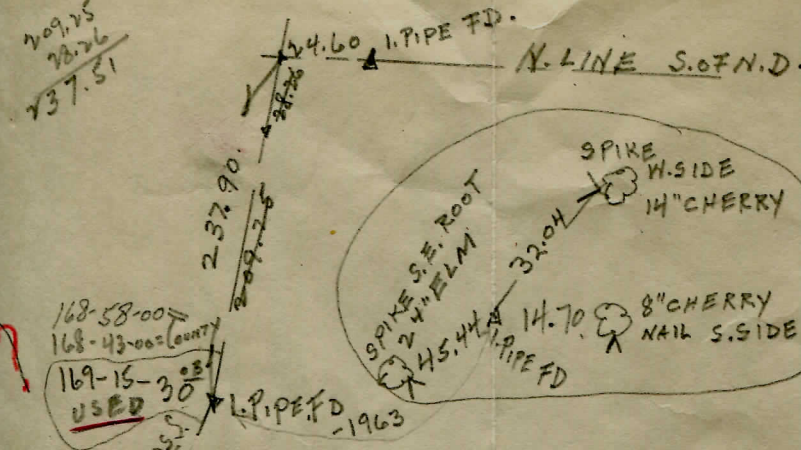 209.25
28.26
237.51
24.60
I.PIPE FD.
N. LINE S. OF N.D.
28.26
237.90
209.25
SPIKE
W.SIDE
14"CHERRY
32.04
SPIKE S.E. ROOT
24" ELM
45.44
I.PIPE
FD
14.70
8"CHERRY
NAIL S.SIDE
168-58-00=
168-43-00=COUNTY
169-15-30 OB
USED
I.PIPE.FD
-1963
S.S.